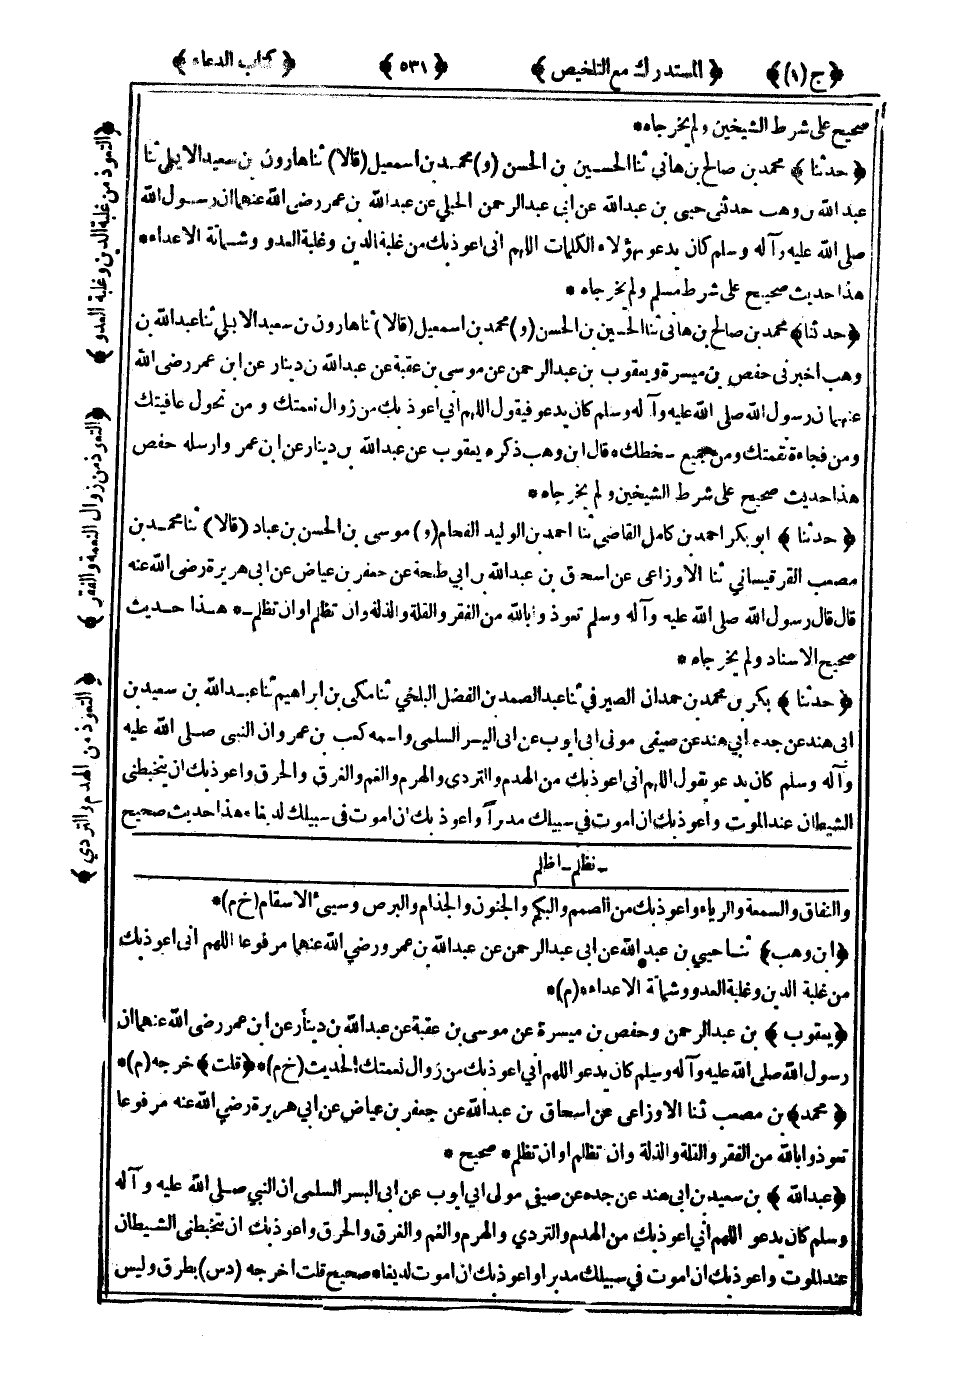 ﴿ج(١)﴾ ﴿المستدرك مع التلخيص﴾ ﴿٥٣١﴾ ﴿كتاب الدعاء﴾
صحيح على شرط الشيخين ولم يخرجاه*
﴿حدثنا﴾ محمد بن صالح بن هاني ثنا الحسين بن الحسن (و) محمد بن اسمعيل (قالا) ثنا هارون بن سعيد الايلي ثنا
عبدالله بن وهب حدثني حيي بن عبدالله عن ابى عبدالرحمن الحبلي عن عبدالله بن عمر رضى الله عنهما ان رسول الله
صلى الله عليه وآله وسلم كان يدعو بهؤلاء الكلمات اللهم انى اعوذ بك من غلبة الدين وغلبة العدو وشماتة الاعداء*
هذا حديث صحيح على شرط مسلم ولم يخرجاه*
﴿حدثنا﴾ محمد بن صالح بن هانى ثنا الحسين بن الحسن (و) محمد بن اسمعيل (قالا) ثنا هارون بن سعيد الايلي ثنا عبدالله بن
وهب اخبرنى حفص بن ميسرة ويعقوب بن عبدالرحمن عن موسى بن عقبة عن عبدالله بن دينار عن ابن عمر رضى الله
عنهما ان رسول الله صلى الله عليه وآله وسلم كان يدعو فيقول اللهم انى اعوذ بك من زوال نعمتك ومن تحول عافيتك
ومن فجاءة نقمتك ومن جميع سخطك* قال ابن وهب ذكره يعقوب عن عبدالله بن دينار عن ابن عمر وارسله حفص
هذا حديث صحيح على شرط الشيخين ولم يخرجاه*
﴿حدثنا﴾ ابو بكر احمد بن كامل القاضى ثنا احمد بن الوليد الفحام (و) موسى بن الحسن بن عباد (قالا) ثنا محمد بن
مصعب القرقيساني ثنا الاوزاعى عن اسحق بن عبدالله بن ابي طلحة عن جعفر بن عياض عن ابى هريرة رضى الله عنه
قال قال رسول الله صلى الله عليه وآله وسلم تعوذوا بالله من الفقر والقلة والذلة وان تظلم او ان تظلم* هذا حديث
صحيح الاسناد ولم يخرجاه*
﴿حدثنا﴾ بكر بن محمد بن حمدان الصيرفى ثنا عبدالصمد بن الفضل البلخي ثنا مكى بن ابراهيم ثنا عبدالله بن سعيد بن
ابى هند عن جده ابي هند عن صيفى مولى ابى ايوب عن ابى اليسر السلمى واسمه كعب بن عمرو ان النبى صلى الله عليه
وآله وسلم كان يدعو يقول اللهم انى اعوذ بك من الهدم والتردى والهرم والغم والغرق والحرق واعوذ بك ان يتخبطنى
الشيطان عند الموت واعوذ بك ان اموت فى سبيلك مدبرآ واعوذ بك ان اموت فى سبيلك لديغاء هذا حديث صحيح
ـ نظلم ـ اظلم
والنفاق والسمعة والرياء واعوذ بك من الصمم والبكم والجنون والجذام والبرص وسيئ الاسقام (خ م)*
﴿ابن وهب﴾ ثنا حيي بن عبدالله عن ابى عبدالرحمن عن عبدالله بن عمر ورضي الله عنهما مرفوعا اللهم انى اعوذ بك
من غلبة الدين وغلبة العدو وشماتة الاعداء* (م)*
﴿يعقوب﴾ بن عبدالرحمن وحفص بن ميسرة عن موسى بن عقبة عن عبدالله بن دينار عن ابن عمر رضى الله عنهما ان
رسول الله صلى الله عليه وآله وسلم كان يدعو اللهم انى اعوذ بك من زوال نعمتك الحديث (خ م)* ﴿قلت﴾ خرجه (م)*
﴿محمد﴾ بن مصعب ثنا الاوزاعى عن اسحاق بن عبدالله عن جعفر بن عياض عن ابي هريرة رضي الله عنه مرفوعا
تعوذوا بالله من الفقر والقلة والذلة وان تظلم او ان تظلم* صحيح*
﴿عبدالله﴾ بن سعيد بن ابى هند عن جده عن صيفى مولى ابى ايوب عن ابى اليسر السلمى ان النبي صلى الله عليه وآله
وسلم كان يدعو اللهم انى اعوذ بك من الهدم والتردي والهرم والغم والغرق والحرق واعوذ بك ان يتخبطنى الشيطان
عند الموت واعوذ بك ان اموت في سبيلك مدبرا واعوذ بك ان اموت لديغا* صحيح قلت اخرجه (د س) بطرق وليس
﴿التعوذ من غلبة الدين وغلبة العدو﴾
﴿التعوذ من زوال النعمة والفقر﴾
﴿التعوذ من الهدم والتردي﴾